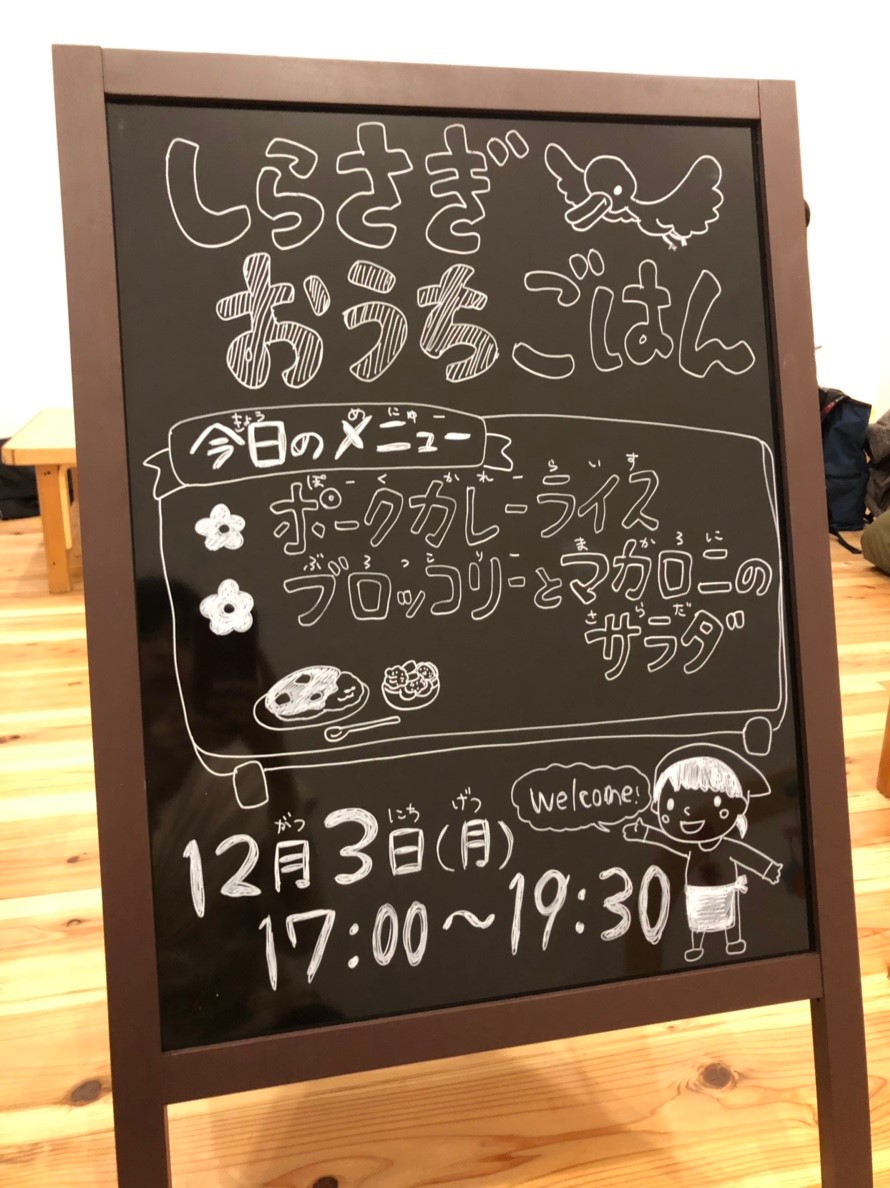 しらさぎ
おうちごはん
きょう めにゅー
今日のメニュー
ぽーくかれーらいす
ポークカレーライス
ぶろっこりー まかろに
ブロッコリーとマカロニの
さらだ
サラダ
Welcome!
がつ にち げつ
12月3日(月)
17:00～19:30